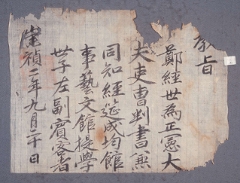 教旨
鄭經世爲正憲大
夫吏曹判書兼
同知經筵成均館
事藝文館提學
世子左副賓客者
崇禎二年九月二十日